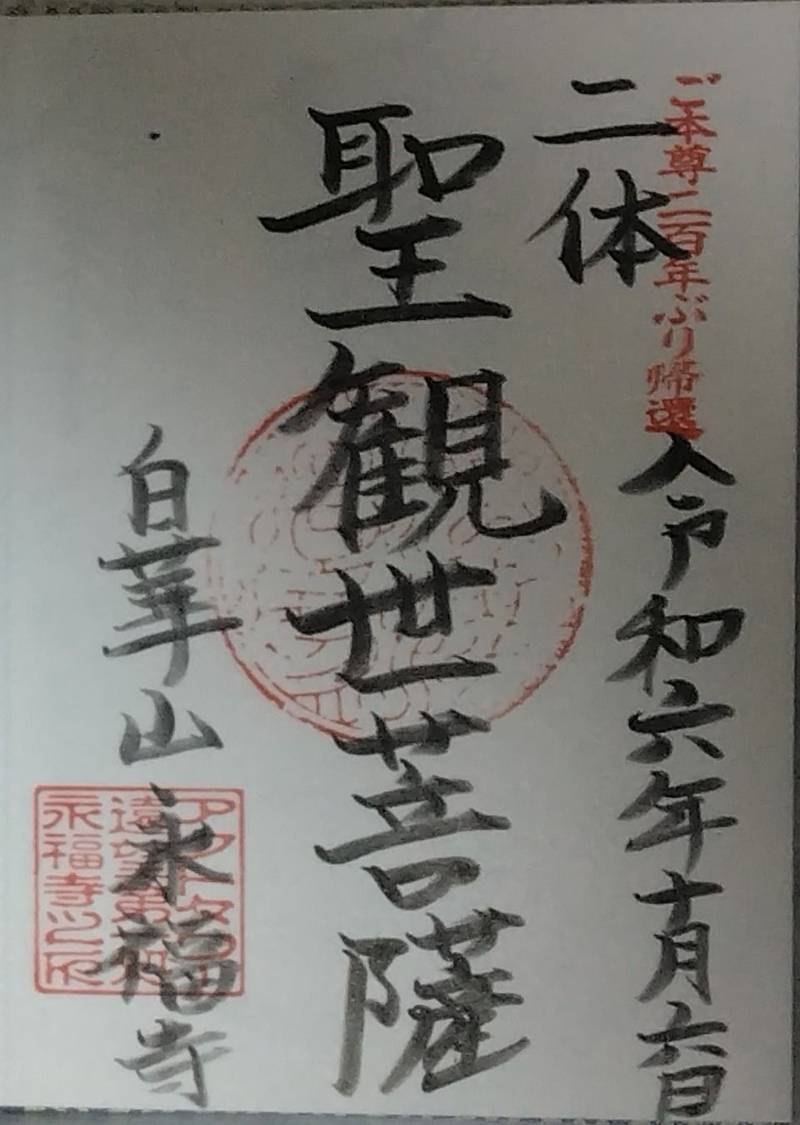 ご本尊二百年ぶり帰還
令和六年十月六日
二体
聖観世菩薩
白華山永福寺
永福寺